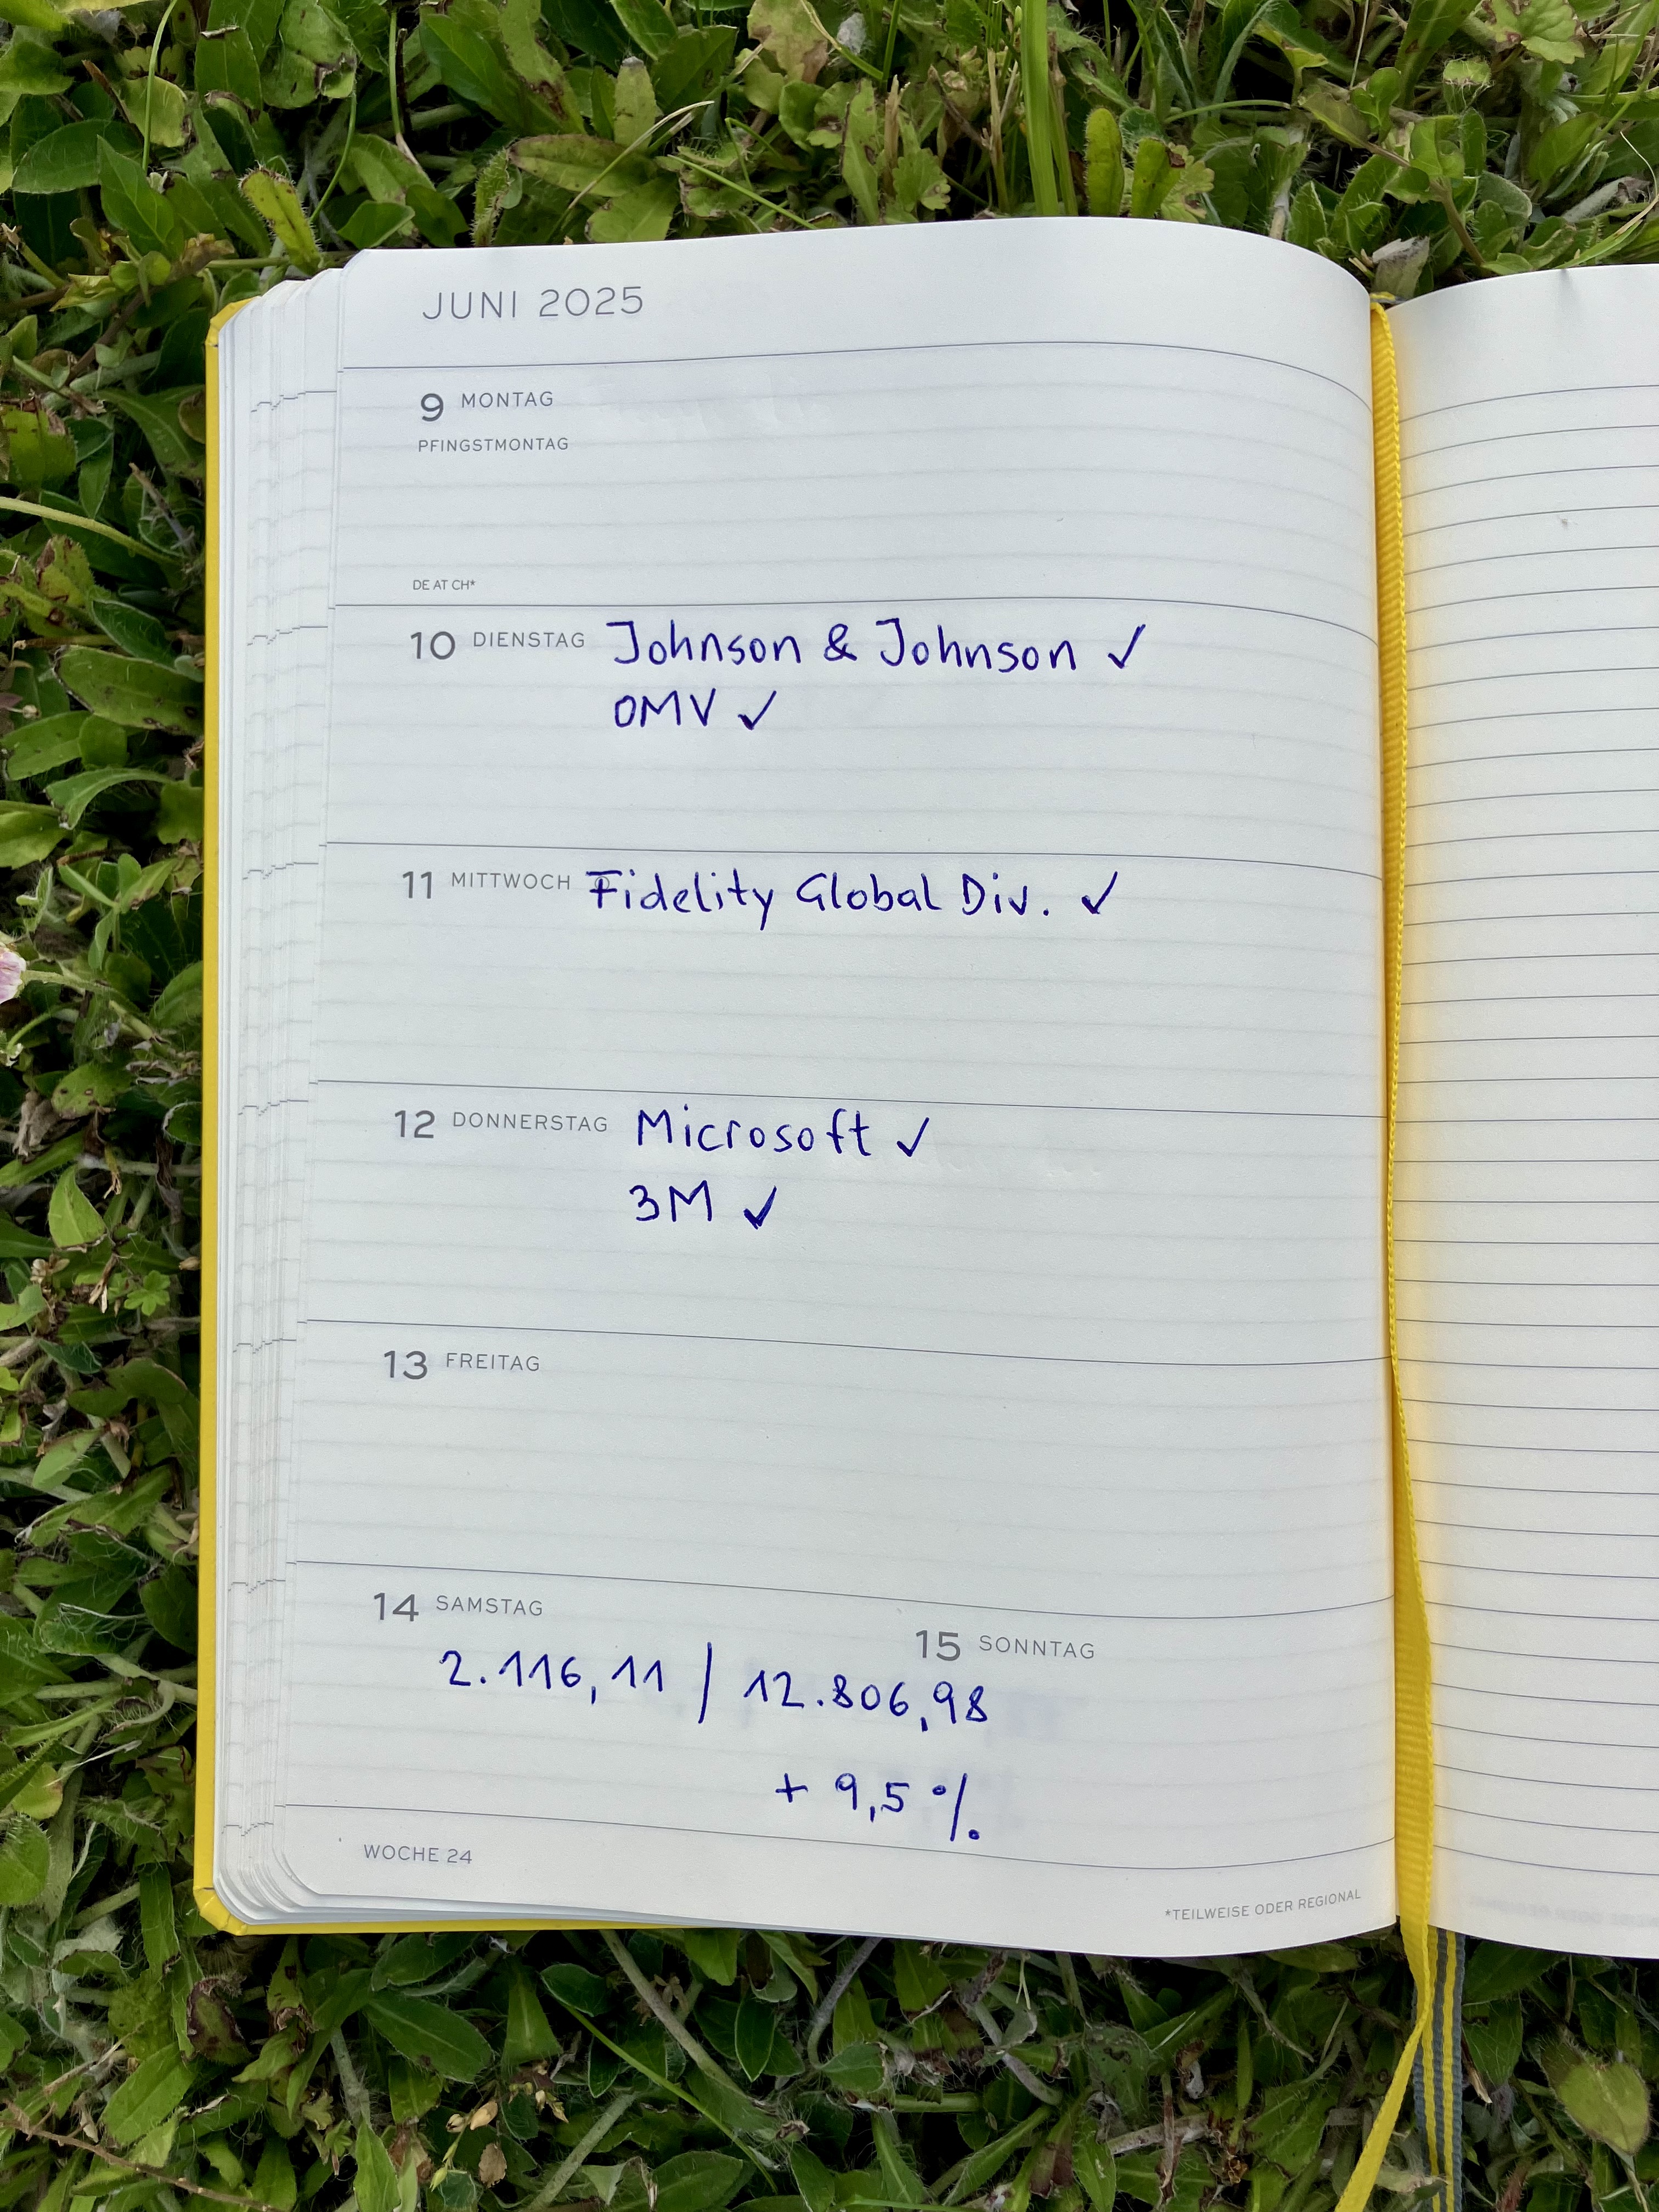 JUNI 2025
9 MONTAG
PFINGSTMONTAG
DE AT CH*
10 DIENSTAG Johnson & Johnson ✓
OMV ✓
11 MITTWOCH Fidelity Global Div. ✓
12 DONNERSTAG Microsoft ✓
3M ✓
13 FREITAG
14 SAMSTAG
15 SONNTAG
2.116,11 / 12.806,98
+ 9,5 %
WOCHE 24
*TEILWEISE ODER REGIONAL